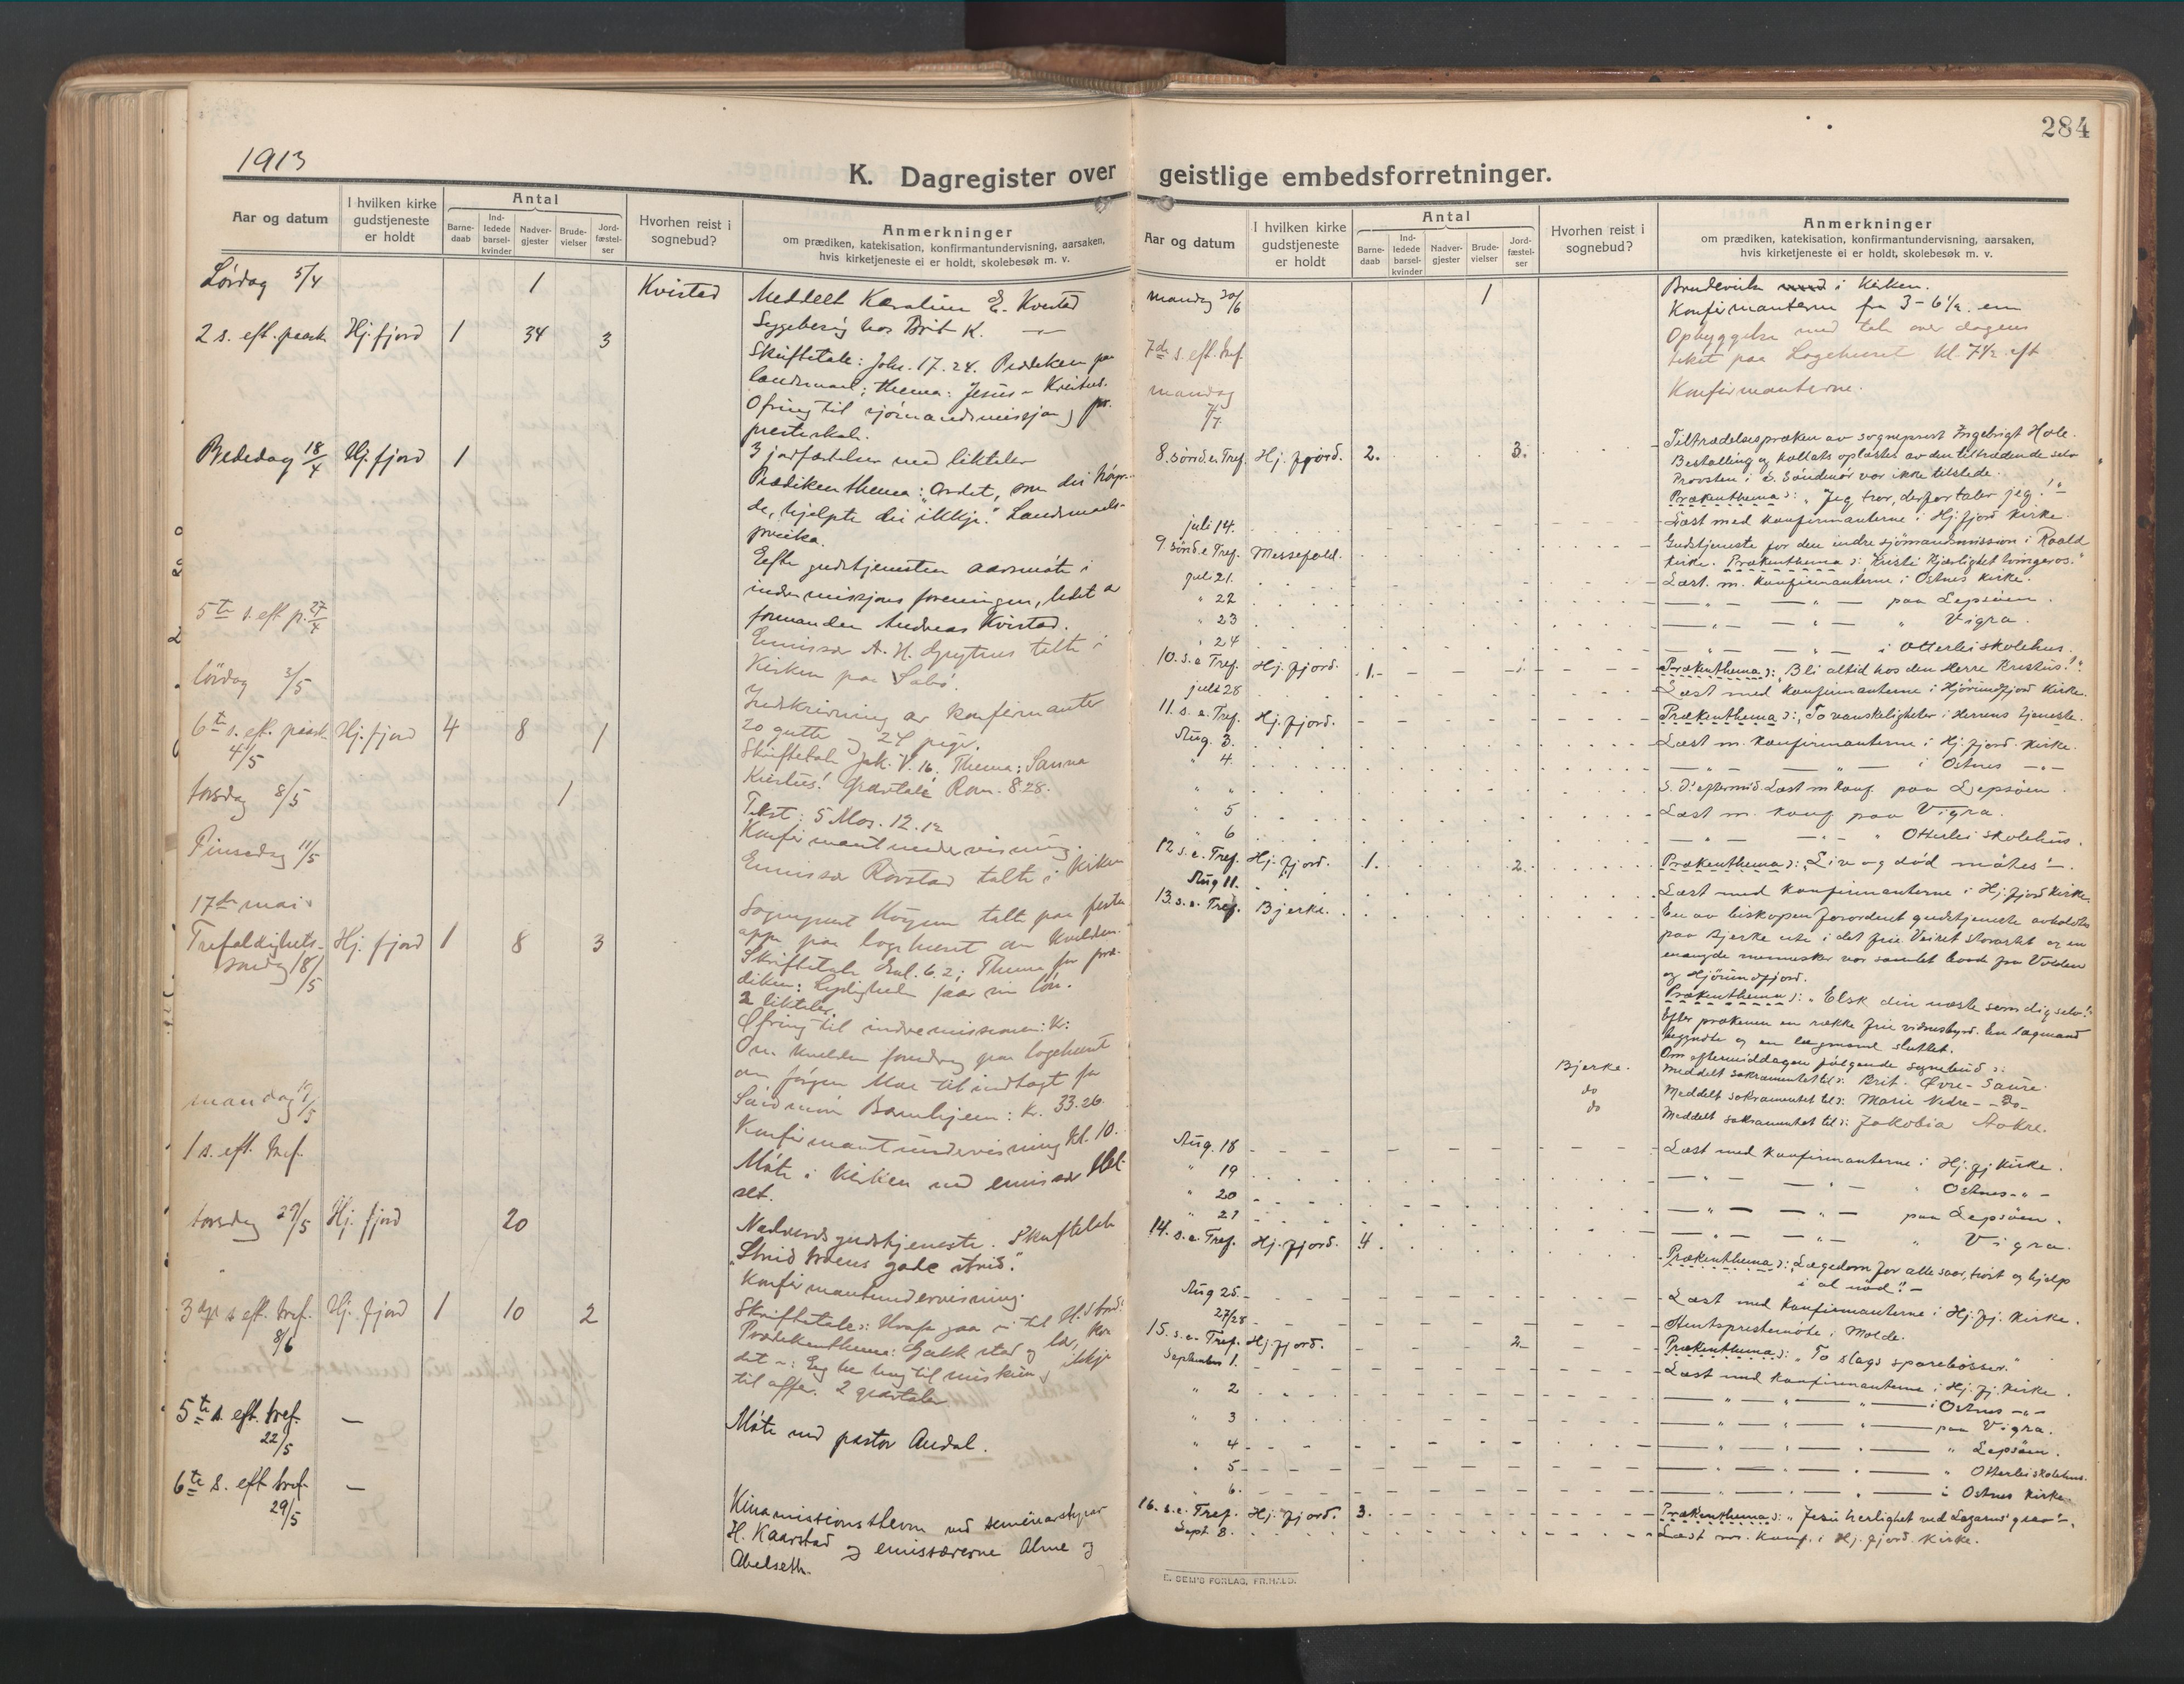 284
1913
K. Dagregister over geistlige embedsforretninger.
Aar og datum
I hvilken kirke gudstjeneste er holdt
Antal
Barne-daab
Ind-ledede barsel-kvinder
Nadver-gjester
Brude-vielser
Jord-fæstel-ser
Hvorhen reist i sognebud?
Anmerkninger
om prædiken, katekisation, konfirmantundervisning, aarsaken,
hvis kirketjeneste ei er holdt, skolebesøk m. v.
Lördag 5/4 1 Kvistad Meddelt E. Kvistad
Sygebesøg hos Brit K. —"—
2 s. eft. paask Hj. fjord 1 34 3
Skriftetale: Joh. 17.24. Prædiken paa
landsmaal; thema: Jesus - Kristus.
Ofring til sjömandsmissjon og
presteskab.
3 jordfæstelser med liktaler
Bededag 18/4 Hj. fjord 1
Prædikenthema: "Ordet, som dei höyr-
de, hjelpte dei ikkje." Landsmaals-
preika.
Efter gudstjenesten aarsmöte i
indremissjonsforeningen, ledet av
formanden Andreas Kvistad.
5te s. eft p. 27/4
Emissær A. H. talte i
Kirken paa Sæbö.
lördag 3/5
Indskrivning av konfirmanter
20 gutter og 24 piger.
6te s. eft. paask 4/5 Hj. fjord 4 8 1
Skriftetale Jak. V. 16. Thema: Sanna
Kristus! Gravtale Rom. 8 28.
torsdag 8/5 1
Tekst: 5 Mos. 12.12
Konfirmantundervisning.
Pinsedag 11/5
Emissær Rovstad talte i Kirken
17de mai
Sogneprest talte paa festen
oppe paa logehuset om kvelden.
Trefoldighets-
söndag 18/5 Hj. fjord 1 8 3
Skriftetale Gal. 6.2; Thema for præ-
diken: Lydighed faar sin lön.
2 liktaler.
Ofring til indremissionen: K:
Om kvelden foredrag paa logehuset
om Jørgen Moe til indtægt for
Söndmör Barnhjem: K. 33.26.
mandag 19/5
Konfirmantundervisning Kl. 10.
1 s. eft. tref.
Möte i Kirken ved emissær
set.
torsdag 29/5 Hj. fjord 20
Nadverdsgudstjeneste. Skriftetale
"Strid troens gode strid."
Konfirmantundervisning.
3dje s eft. tref. 8/6 Hj. fjord 1 10 2
Skriftetale:
Prædikenthema: Gakk
til offer. 2 gravtaler
5te s. eft. tref. 22/5 —
Möte ved pastor Andal.
6te s. eft tref. 29/5 —
Kinamissionsstevne ved seminarstyrer
H. Kaarstad og emissærerne Alme og
Abelseth.
Aar og datum
I hvilken kirke gudstjeneste er holdt
Antal
Barne-daab
Ind-ledede barsel-kvinder
Nadver-gjester
Brude-vielser
Jord-fæstel-ser
Hvorhen reist i sognebud?
Anmerkninger
om prædiken, katekisation, konfirmantundervisning, aarsaken,
hvis kirketjeneste ei er holdt, skolebesøk m. v.
mandag 30/6 1 Brudevielse i Kirken.
Konfirmanterne fra 3 - 6 1/2 em
7de s. eft. tref.
Opbyggelse med tale over dagens
tekst paa Logehuset kl. 7 1/2 eft
mandag 7/7
Konfirmanterne.
8. sönd. e. Tref. Hj. fjord. 2. 3.
Tiltrædelsespræken av sogneprest Ingebrigt Hole.
Bestalling og kollats oplæstes av den tiltrædende selv
Provsten i S. Söndmör var ikke tilstede.
Prækenthema: "Jeg tror, derfor taler jeg!"
juli 14. Læst med konfirmanterne i Hj. fjord Kirke.
9. sönd. e Tref. Messefald. Gudstjeneste for den indre sjömandsmission i Roald
kirke. Prækenthema: "Kristi Kjærlighet tvinger os."
jul 21. Læst. m. konfirmanterne i Ostnes kirke.
" 22 — " — — " — paa Lepsöen.
" 23 — " — — " — " Vigra.
" 24 — " — — " — i Otterlei skolehus.
10. s. e Tref. Hj. fjord. 1. Prækenthema: "Bli altid hos den Herre Kristus!"
juli 28 Læst med konfirmanterne i Hjörundfjord Kirke.
11. s. e. Tref. Hj. fjord. Prækenthema: "To vanskeligheter i Herrens tjeneste.
Aug. 3. Læst m. konfirmanterne i Hj. fjord. Kirke.
" 4. — " — — " — i Ostnes — " —
" " S. D. eftermid. Læst m konf paa Lepsöen.
" 5 Læst m. konf. paa Vigra.
" 6 — " — — " — " Otterlei skolehus.
12 s. e. Tref. Hj. fjord. 1. 2. Prækenthema: "Liv og död mötes!"
Aug 11. Læst med konfirmanterne i Hj. fjord Kirke
13. s. e. Tref. Bjerke. En av biskopen forordnet gudstjeneste avholdtes
paa Bjerke ute i det frie. Veiret storartet og en
mængde mennesker var samlet baade fra Volden
og Hjörundfjord.
Prækenthema: "Elsk din næste som dig selv!"
Efter prækenen en række frie vidnesbyrd. En lægmand
begyndte og en lægmand sluttet.
Om eftermiddagen fölgende sognebud:
Bjerke. Meddelt sakramentet til: Brit. Övre-Saure.
do Meddelt sakramentet til: Marie Nedre- -Do-
do Meddelt sakramentet til: Jakobia Aakre.
Aug. 18 Læst med konfirmanterne i Hj. fj Kirke.
" 19 — " — — " — " Ostnes - " -
" 20 — " — — " — paa Lepsöen.
" 21 — " — — " — " Vigra.
14. s. e. Tref. Hj. fjord. 4. Prækenthema: "Lægedom for alle saar, tröst og hjelp
i al nöd!"
Aug 25. Læst med konfirmanterne i Hj. fj. Kirke.
27/28 Amtsprestemöte i Molde.
15. s. e. Tref. Hj. fjord. 2 Prækenthema: "To slags sparebösser."
September 1. Læst med konfirmanterne i Hj. fj. Kirke.
" 2 — " — " — i Ostnes — " —
" 3 — " — " — paa Vigra.
" 4 — " — " — " Lepsöen.
" 5 — " — " — " Otterlei skolehus.
" 6. — " — " — i Ostnes Kirke
16. s. e. Tref. Hj. fjord. 3. Prækenthema: "Jesu herlighet ved Lazarus' grav!"
Sept. 8. Læst m. konf. i Hj. fjord. Kirke.
E. SEM'S FORLAG, FR.HALD.